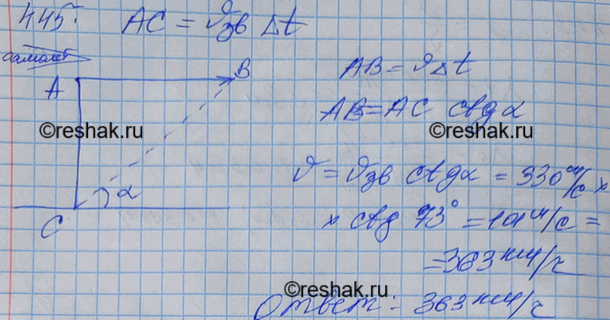 445. AC = υзв Δt
самолёт
A B
AB = υΔt
AB = AC ctgα
©reshak.ru
©reshak.ru
υ = υзв ctgα = 330 м/с ×
α
× ctg 73° = 101 м/с =
C
= 363 км/ч
©reshak.ru
©reshak.ru
Ответ: 363 км/ч